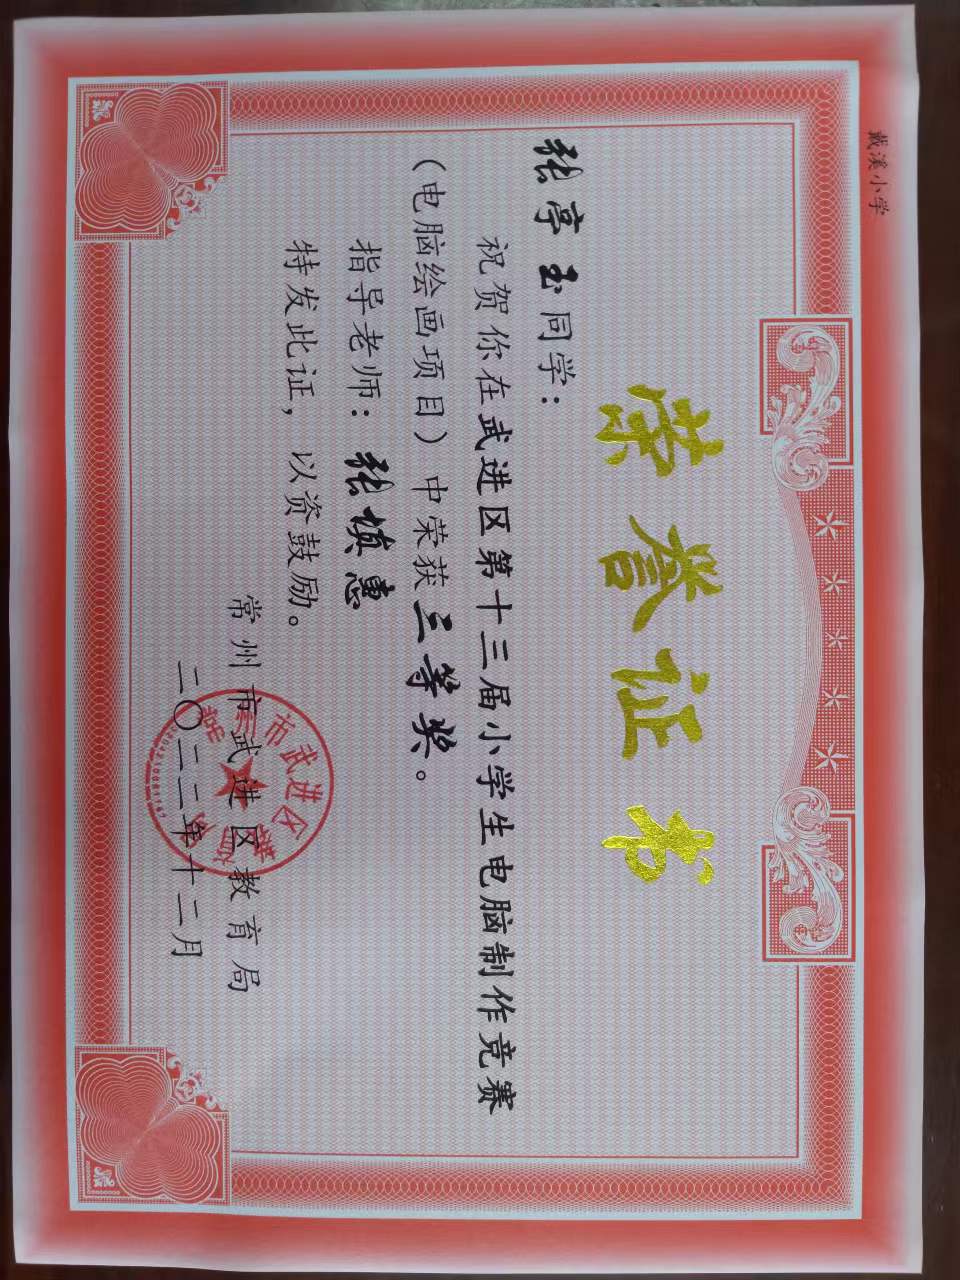 戴溪小学
荣誉证书
张亭玉同学：
祝贺你在武进区第十三届小学生电脑制作竞赛
（电脑绘画项目）中荣获三等奖。
指导老师：张慎惠
特发此证，以资鼓励。
常州市武进区教育局
二〇二二年十二月